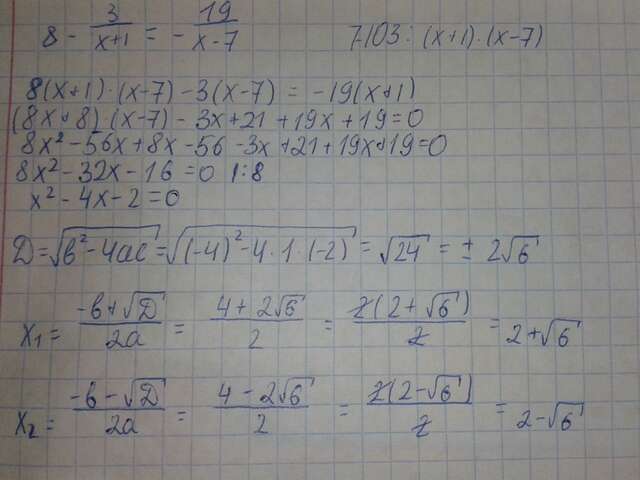 8 - 3/(x+1) = - 19/(x-7)    ОДЗ: (x+1)·(x-7)
8(x+1)·(x-7) - 3(x-7) = -19(x+1)
(8x+8)·(x-7) - 3x + 21 + 19x + 19 = 0
8x² - 56x + 8x - 56 - 3x + 21 + 19x + 19 = 0
8x² - 32x - 16 = 0 |:8
x² - 4x - 2 = 0
D = √(b² - 4ac) = √((-4)² - 4·1·(-2)) = √24 = ± 2√6
x₁ = (-b + √D)/2a = (4 + 2√6)/2 = 2(2 + √6)/2 = 2 + √6
x₂ = (-b - √D)/2a = (4 - 2√6)/2 = 2(2 - √6)/2 = 2 - √6